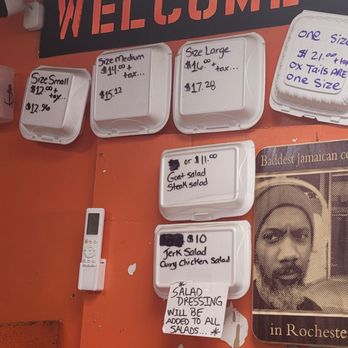 WELCOME
Size Small
$12.00 +
tax...
$12.96
Size Medium
$14.00 +
tax...
$15.12
Size Large
$16.00 +
tax...
$17.28
one Size
$21.00 +
OX Tails ARE
one Size
or $11.00
Goat salad
Steak salad
$10
Jerk Salad
Curry Chicken Salad
SALAD
DRESSING
WILL BE
ADDED TO ALL
SALADS...
Baddest Jamaican
in Rochester